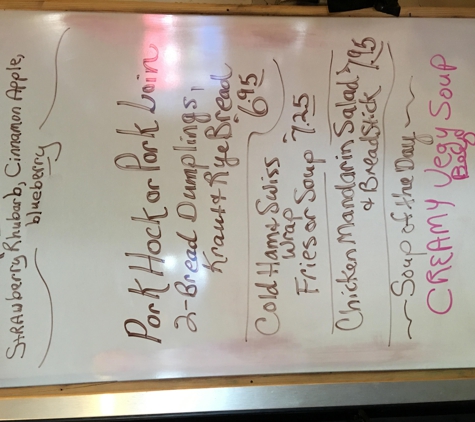 Strawberry Rhubarb, Cinnamon Apple,
blueberry
Pork Hock or Pork Loin
2-Bread Dumplings,
Kraut & Rye Bread
6.95
Cold Ham & Swiss
Wrap
Fries or Soup 7.25
Chicken Mandarin Salad 7.95
& Breadstick
~ Soup of the Day ~
CREAMY Vegy Soup